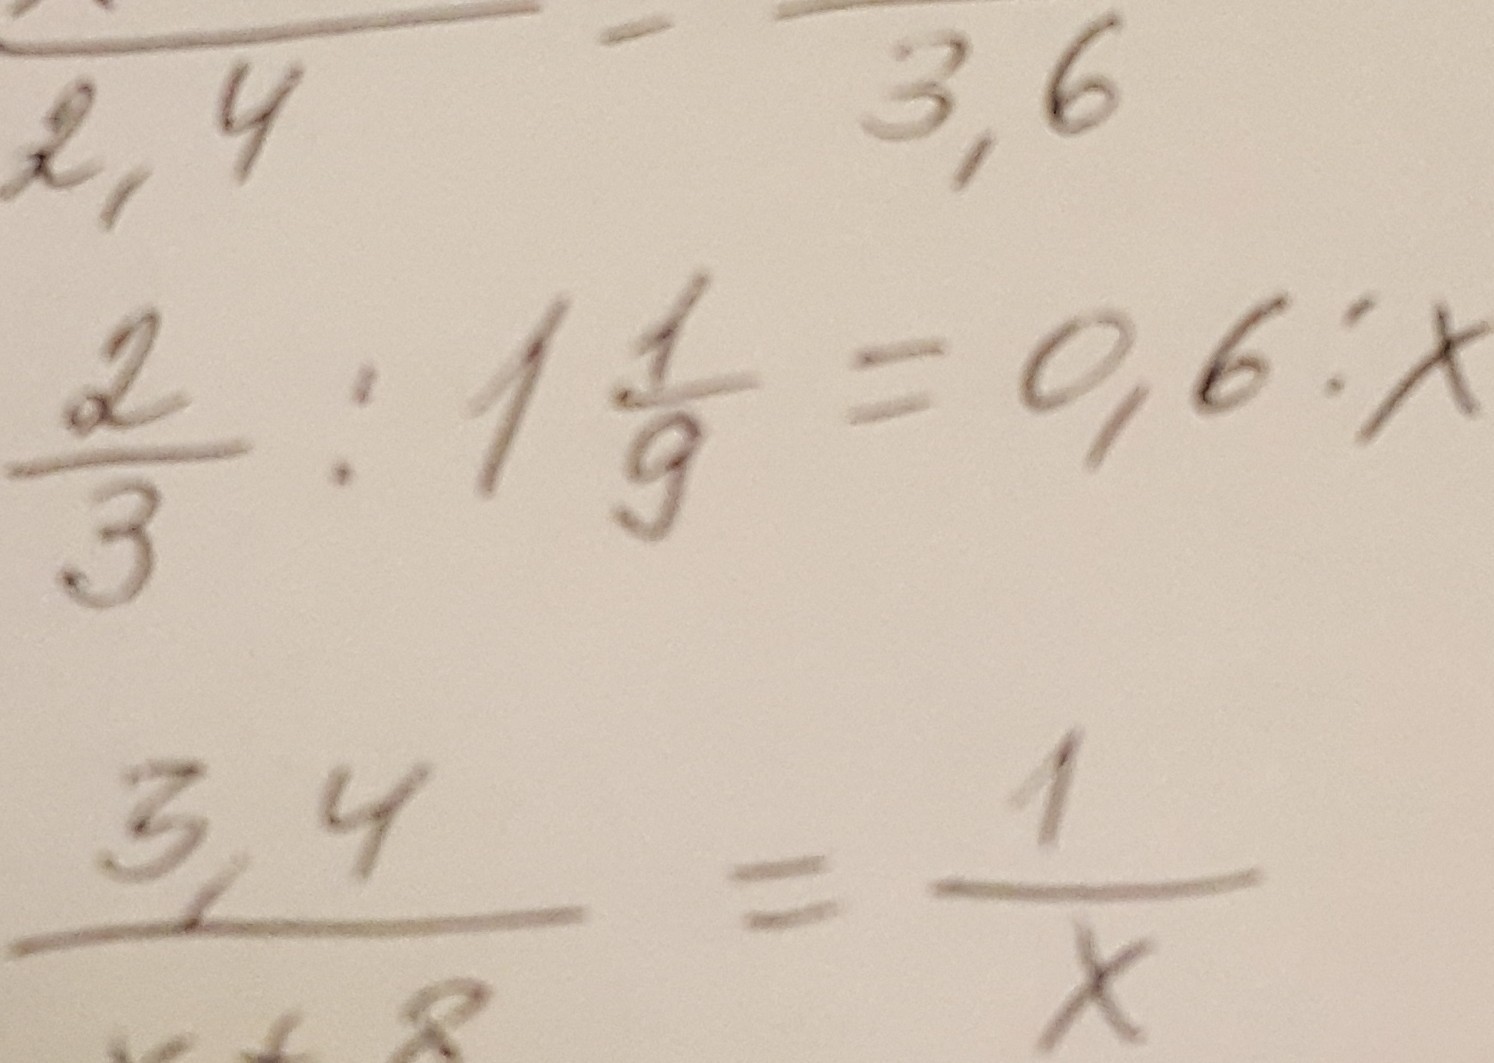 2,4 - 3,6
2/3 : 1 1/9 = 0,6 : x
3,4 / x + 8 = 1 / x